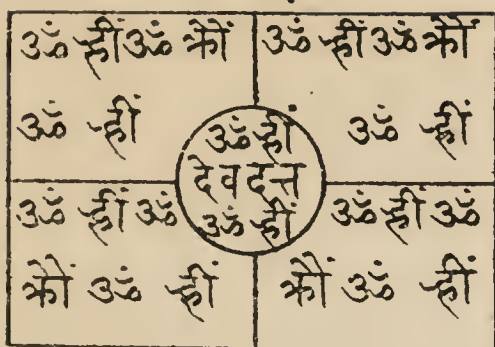 ॐ ह्रीं ॐ क्रौं
ॐ ह्रीं
ॐ ह्रीं ॐ क्रौं
ॐ ह्रीं
ॐ ह्रीं
देवदत्त
ॐ ह्रीं
ॐ ह्रीं ॐ
क्रौं ॐ ह्रीं
ॐ ह्रीं ॐ
क्रौं ॐ ह्रीं